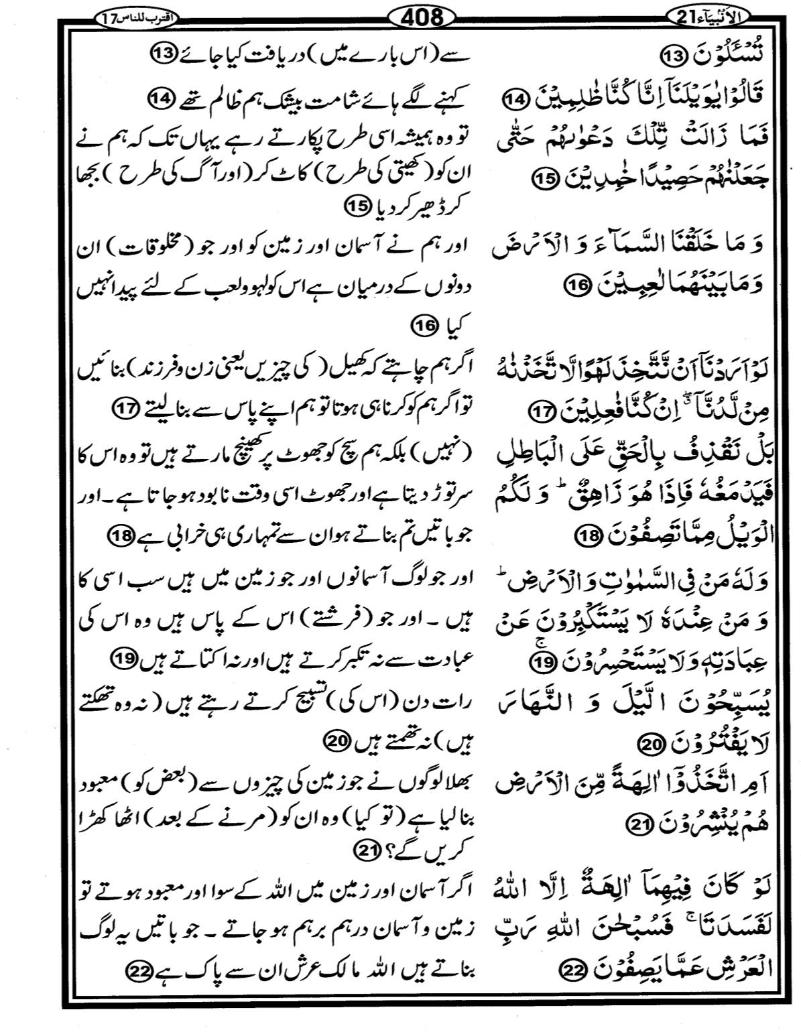 الاَنْبِيَآء 21
408
اقترب للناس 17
تُسْـَٔلُوْنَ 13
قَالُوْا یٰوَیْلَنَاۤ اِنَّا كُنَّا ظٰلِمِیْنَ 14
فَمَا زَالَتْ تِّلْكَ دَعْوٰىهُمْ حَتّٰی
جَعَلْنٰهُمْ حَصِیْدًا خٰمِدِیْنَ 15
وَ مَا خَلَقْنَا السَّمَآءَ وَ الْاَرْضَ
وَ مَا بَیْنَهُمَا لٰعِبِیْنَ 16
لَوْ اَرَدْنَاۤ اَنْ نَّتَّخِذَ لَهْوًا لَّا تَّخَذْنٰهُ
مِنْ لَّدُنَّاۤ ۖۗ اِنْ كُنَّا فٰعِلِیْنَ 17
بَلْ نَقْذِفُ بِالْحَقِّ عَلَی الْبَاطِلِ
فَیَدْمَغُهٗ فَاِذَا هُوَ زَاهِقٌ ؕ وَ لَكُمُ
الْوَیْلُ مِمَّا تَصِفُوْنَ 18
وَ لَهٗ مَنْ فِی السَّمٰوٰتِ وَ الْاَرْضِ ؕ
وَ مَنْ عِنْدَهٗ لَا یَسْتَكْبِرُوْنَ عَنْ
عِبَادَتِهٖ وَ لَا یَسْتَحْسِرُوْنَ ۚ 19
یُسَبِّحُوْنَ الَّیْلَ وَ النَّهَارَ
لَا یَفْتُرُوْنَ 20
اَمِ اتَّخَذُوْۤا اٰلِهَةً مِّنَ الْاَرْضِ
هُمْ یُنْشِرُوْنَ 21
لَوْ كَانَ فِیْهِمَاۤ اٰلِهَةٌ اِلَّا اللّٰهُ
لَفَسَدَتَا ۚ فَسُبْحٰنَ اللّٰهِ رَبِّ
الْعَرْشِ عَمَّا یَصِفُوْنَ 22
سے (اس بارے میں) دریافت کیا جائے 13
کہنے لگے ہائے شامت بیشک ہم ظالم تھے 14
تو وہ ہمیشہ اسی طرح پکارتے رہے یہاں تک کہ ہم نے
ان کو (کھیتی کی طرح) کاٹ کر (اور آگ کی طرح) بجھا
کر ڈھیر کر دیا 15
اور ہم نے آسمان اور زمین کو اور جو (مخلوقات) ان
دونوں کے درمیان ہے اس کو لہو و لعب کے لئے پیدا نہیں
کیا 16
اگر ہم چاہتے کہ کھیل (کی چیزیں یعنی زن و فرزند) بنائیں
تو اگر ہم کو کرنا ہی ہوتا تو ہم اپنے پاس سے بنا لیتے 17
(نہیں) بلکہ ہم سچ کو جھوٹ پر کھینچ مارتے ہیں تو وہ اس کا
سر توڑ دیتا ہے اور جھوٹ اسی وقت نابود ہو جاتا ہے ۔ اور
جو باتیں تم بناتے ہو ان سے تمہاری ہی خرابی ہے 18
اور جو لوگ آسمانوں اور جو زمین میں ہیں سب اسی کا
ہیں ۔ اور جو (فرشتے) اس کے پاس ہیں وہ اس کی
عبادت سے نہ تکبر کرتے ہیں اور نہ اکتاتے ہیں 19
رات دن (اس کی) تسبیح کرتے رہتے ہیں (نہ وہ تھکتے
ہیں) نہ تھمتے ہیں 20
بھلا لوگوں نے جو زمین کی چیزوں سے (بعض کو) معبود
بنا لیا ہے (تو کیا) وہ ان کو (مرنے کے بعد) اٹھا کھڑا
کریں گے؟ 21
اگر آسمان اور زمین میں اللہ کے سوا اور معبود ہوتے تو
زمین و آسمان درہم برہم ہو جاتے ۔ جو باتیں یہ لوگ
بناتے ہیں اللہ مالک عرش ان سے پاک ہے 22